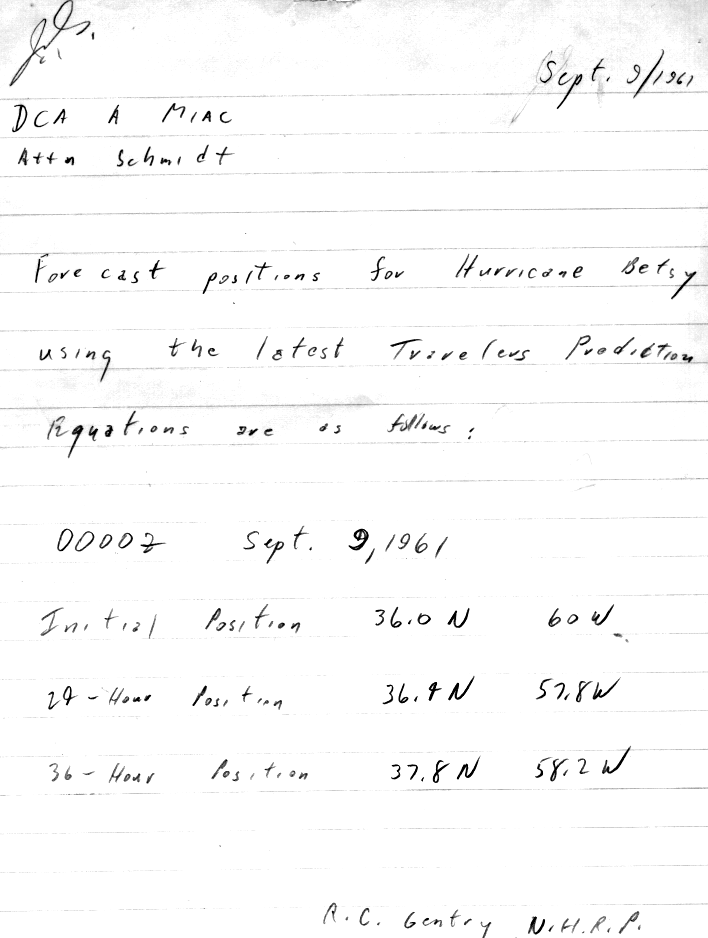 Sept. 9/1961
DCA A MIAC
Attn Schmidt
Forecast positions for Hurricane Betsy
using the latest Travelers Prediction
Equations are as follows:
0000Z Sept. 9, 1961
Initial Position 36.0 N 60 W
24-Hour Position 36.4 N 57.8 W
36-Hour Position 37.8 N 58.2 W
R.C. Gentry N.H.R.P.